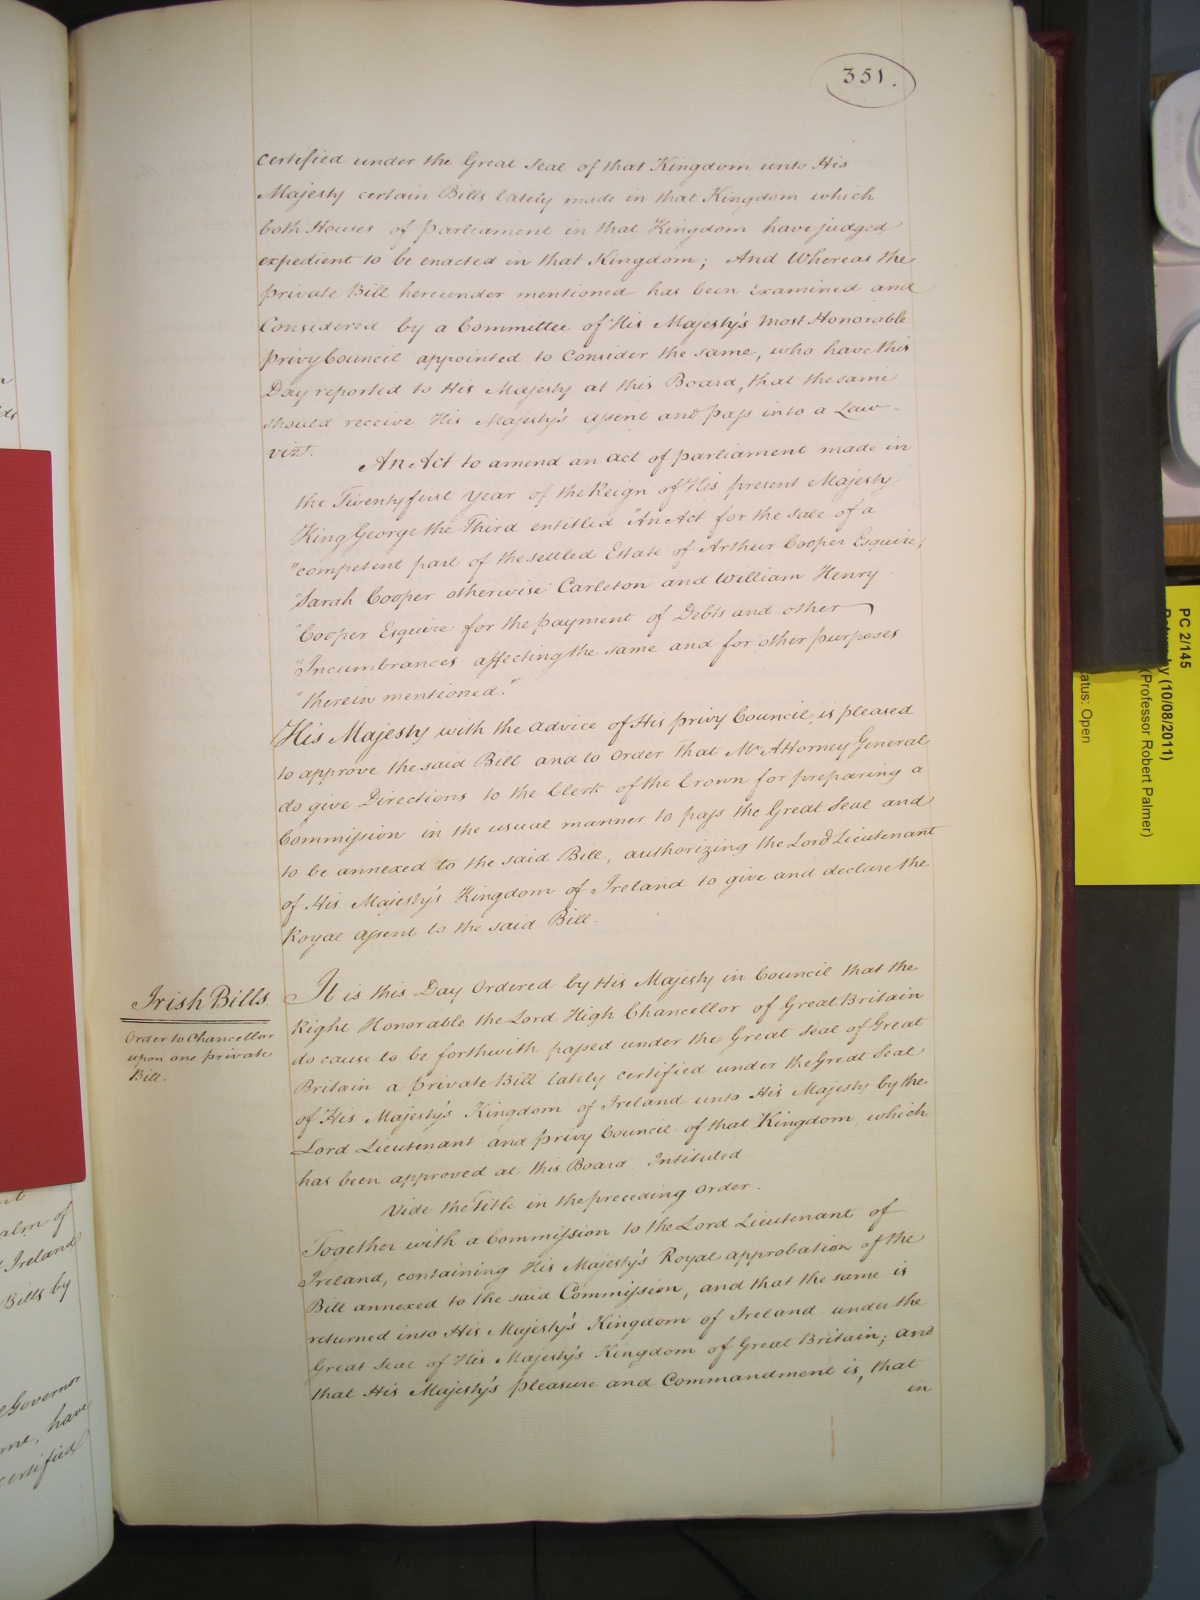 351.
certified under the Great Seal of that Kingdom unto His
Majesty certain Bills lately made in that Kingdom which
both Houses of Parliament in that Kingdom have judged
expedient to be enacted in that Kingdom; And Whereas the
private Bill hereunder mentioned has been Examined and
Considered by a Committee of His Majesty's most Honorable
Privy Council appointed to Consider the same, who have this
Day reported to His Majesty at this Board, that the same
should receive His Majesty's assent and pass into a Law
vizt.
An Act to amend an act of parliament made in
the Twenty first year of the Reign of His present Majesty
King George the Third entitled "An Act for the sale of a
"competent part of the settled Estate of Arthur Cooper Esquire,
"Sarah Cooper otherwise Carleton and William Henry
"Cooper Esquire for the payment of Debts and other
"Incumbrances affecting the same and for other purposes
"therein mentioned."
His Majesty with the advice of His privy Council, is pleased
to approve the said Bill and to Order that Mr Attorney General
do give Directions to the Clerk of the Crown for preparing a
Commission in the usual manner to pass the Great Seal and
to be annexed to the said Bill, authorizing the Lord Lieutenant
of His Majesty's Kingdom of Ireland to give and declare the
Royal assent to the said Bill.
Irish Bills.
Order to Chancellor
upon one private
Bill.
It is this Day Ordered by His Majesty in Council that the
Right Honorable the Lord High Chancellor of Great Britain
do cause to be forthwith passed under the Great Seal of Great
Britain a private Bill lately certified under the Great Seal
of His Majesty's Kingdom of Ireland unto His Majesty by the
Lord Lieutenant and privy Council of that Kingdom, which
has been approved at this Board Intituled
Vide the Title in the preceding Order.
Together with a Commission to the Lord Lieutenant of
Ireland, containing His Majesty's Royal approbation of the
Bill annexed to the said Commission, and that the same is
returned into His Majesty's Kingdom of Ireland under the
Great Seal of His Majesty's Kingdom of Great Britain; and
that His Majesty's pleasure and Commandment is, that
in
alm of
Ireland
Bills by
Governor
have
certified
PC 2/145
by (10/08/2011)
(Professor Robert Palmer)
atus: Open